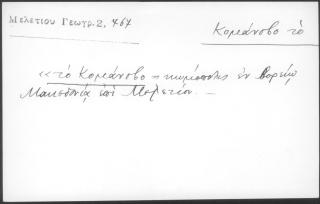 Μελετίου Γεωγρ. 2, 467
Κομιάνοβο τὸ
«τὸ Κομιάνοβο → κωμόπολις ἐν Βορείῳ
Μακεδονίᾳ ἐπὶ Μελετίου. —